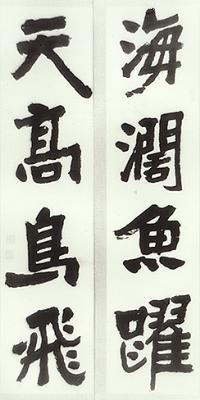 海濶魚躍
天髙鳥飛